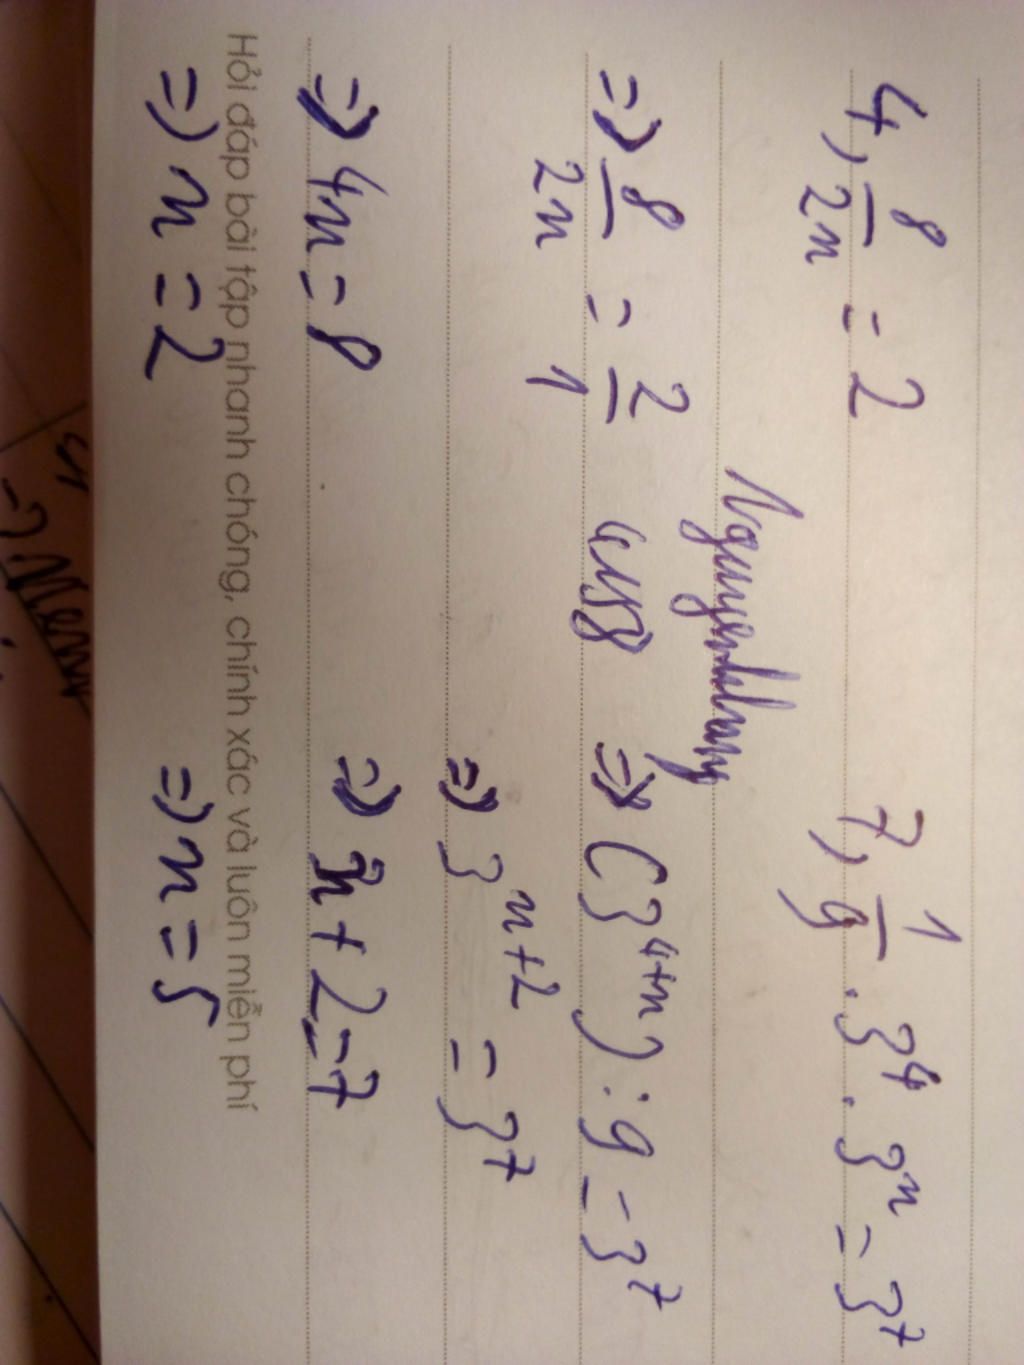 4, 8/2n = 2
=> 8/2n = 2/1
=> 4n = 8
=> n = 2
7, 1/9 . 3⁴ . 3ⁿ = 3⁷
=> (3⁴⁺ⁿ) : 9 = 3⁷
=> 3ⁿ⁺² = 3⁷
=> n + 2 = 7
=> n = 5
Hỏi đáp bài tập nhanh chóng, chính xác và luôn miễn phí